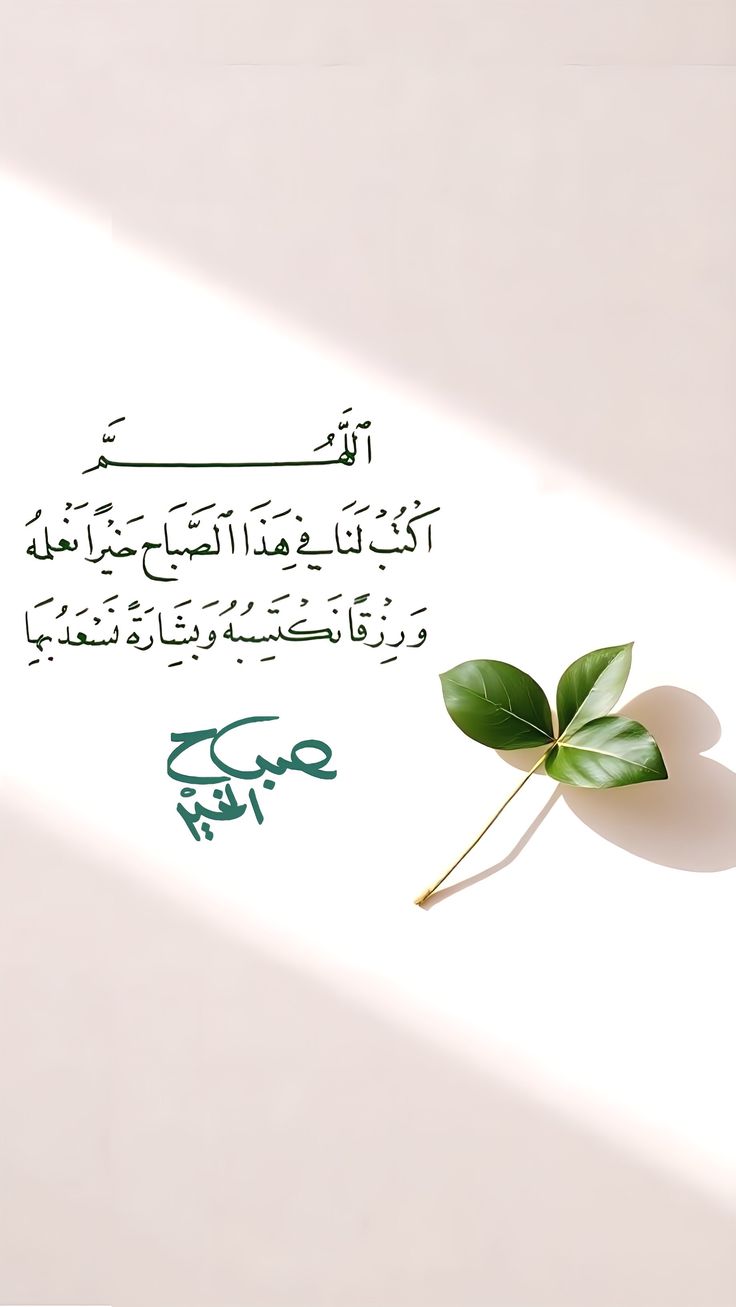 ٱللَّهُمَّ
ٱكْتُبْ لَنَا فِي هَذَا ٱلصَّبَاحِ خَيْرًا نَعْلَمُهُ
وَرِزْقًا نَكْتَسِبُهُ وَبِشَارَةً نَسْعَدُ بِهَا
صباح
الخير